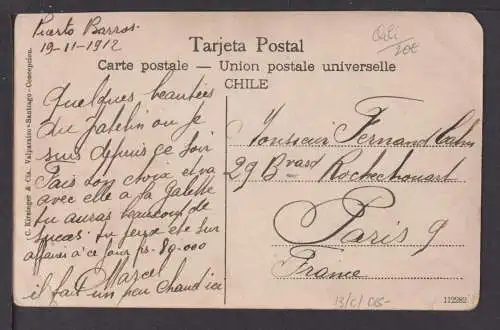 Puerto Barros.
19-11-1912
Tarjeta Postal
Carte postale — Union postale universelle
CHILE
C. Kirsinger & Cia. Valparaiso-Santiago-Concepcion.
Quelques beautées
du ou je
suis depuis ce soir
Fais ton choix et va
avec elle à la galette
tu auras beaucoup de
succès. tu peux être sur
affaires à ce jour frs. 80.000
Marcel
il fait un peu chaud ici
Monsieur Fernand
29 Bvard Rochechouart
Paris 9
France
112982